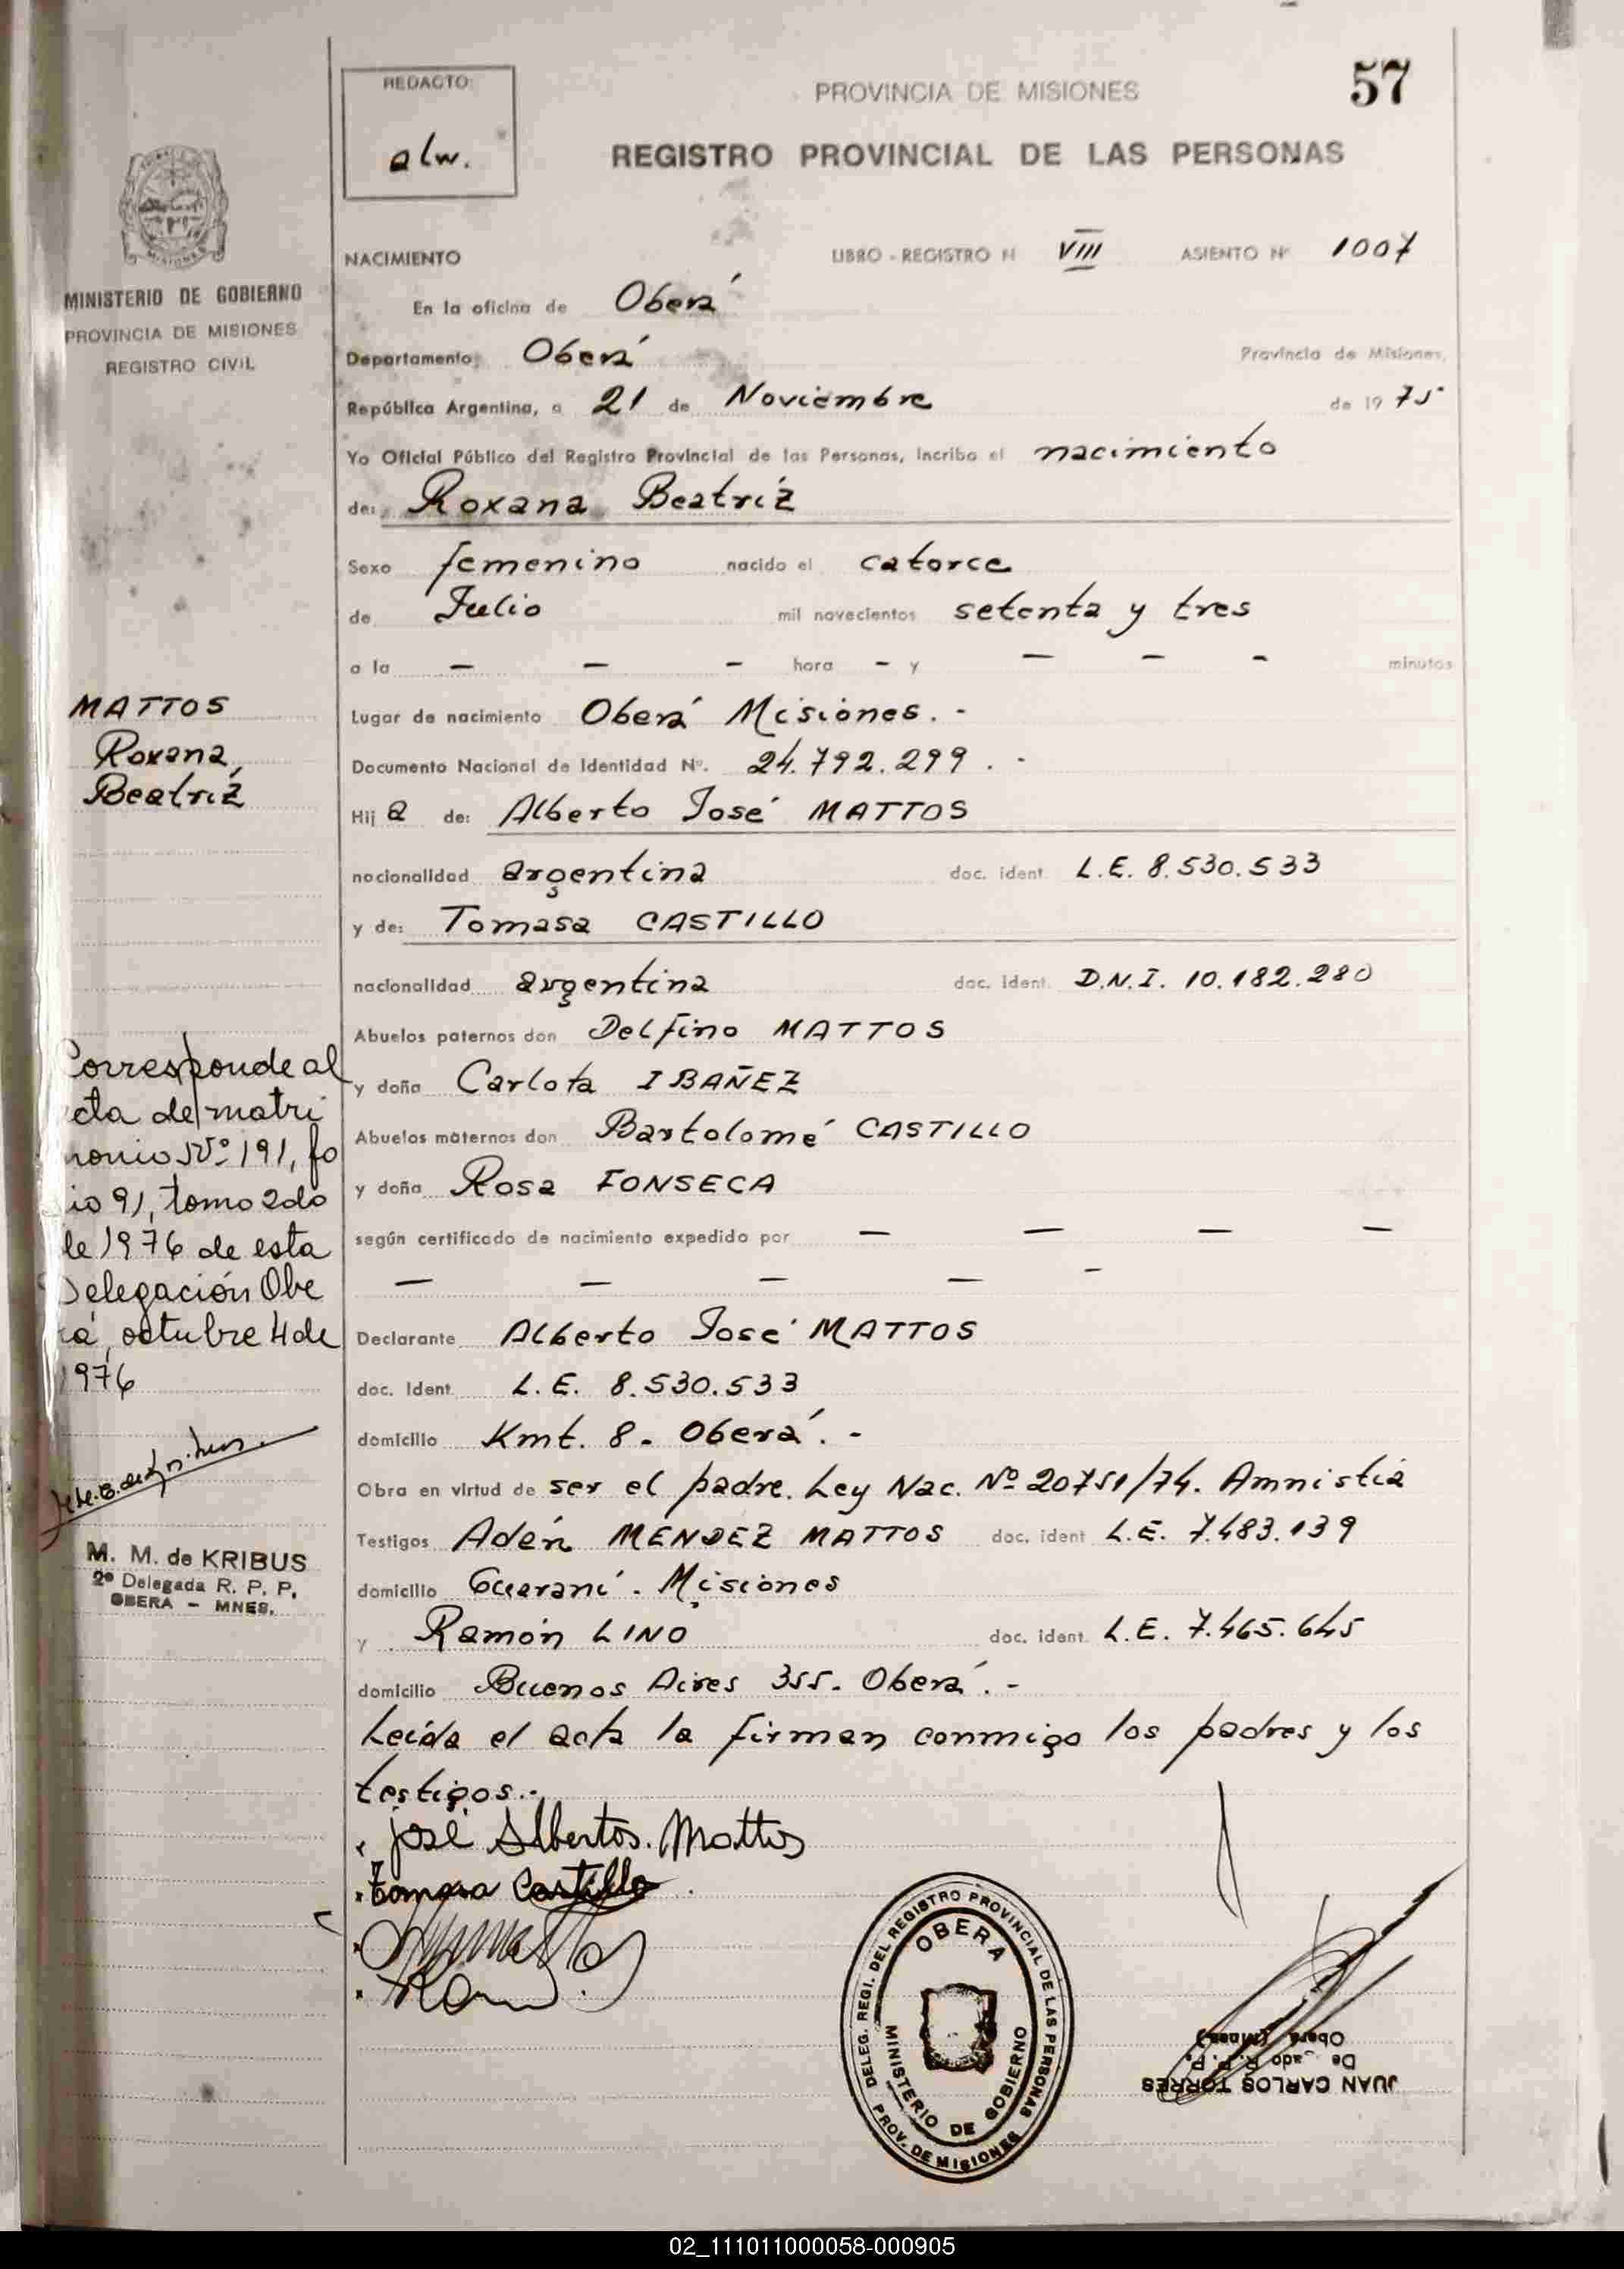 57
REDACTO:
alw.
PROVINCIA DE MISIONES
REGISTRO PROVINCIAL DE LAS PERSONAS
MISIONES
MINISTERIO DE GOBIERNO
PROVINCIA DE MISIONES
REGISTRO CIVIL
NACIMIENTO LIBRO - REGISTRO N VIII ASIENTO Nº 1007
En la oficina de Oberá
Departamento Oberá Provincia de Misiones,
República Argentina, a 21 de Noviembre de 1975
Yo Oficial Público del Registro Provincial de las Personas, incribo el nacimiento
de: Roxana Beatríz
Sexo femenino nacido el catorce
de Julio mil novecientos setenta y tres
a la — — — hora — y — — — minutos
Lugar de nacimiento Oberá Misiones. -
Documento Nacional de Identidad Nº. 24.792.299. -
Hija de: Alberto José MATTOS
nacionalidad argentina doc. ident. L.E. 8.530.533
y de: Tomasa CASTILLO
nacionalidad argentina doc. ident. D.N.I. 10.182.280
Abuelos paternos don Delfino MATTOS
y doña Carlota IBAÑEZ
Abuelos maternos don Bartolomé CASTILLO
y doña Rosa FONSECA
según certificado de nacimiento expedido por — — — —
— — — — —
Declarante Alberto José MATTOS
doc. Ident. L.E. 8.530.533
domicilio Kmt. 8. Oberá. -
Obra en virtud de ser el padre. Ley Nac. Nº 20751/74. Amnistia
Testigos Adén MENDEZ MATTOS doc. ident L.E. 7.483.139
domicilio Guaraní. Misiones
y Ramón LINO doc. ident. L.E. 7.465.645
domicilio Buenos Aires 355. Oberá. -
Leída el acta la firman conmigo los padres y los
testigos.-
José Albertos. Mattos
Tomasa Castillo
MATTOS
Roxana
Beatríz
Corresponde al
cta de matri
monio Nº 191, fo
io 91, tomo 2do
de 1976 de esta
Delegación Obe
rá, octubre 4 de
1976
M. M. de KRIBUS
2º Delegada R. P. P.
OBERA - MNES.
DELEG. REGI. DEL REGISTRO PROVINCIAL DE LAS PERSONAS
OBERA
MINISTERIO DE GOBIERNO
PROV. DE MISIONES
JUAN CARLOS TORRES
R. P. P.
Oberá (Mnes)
02_111011000058-000905